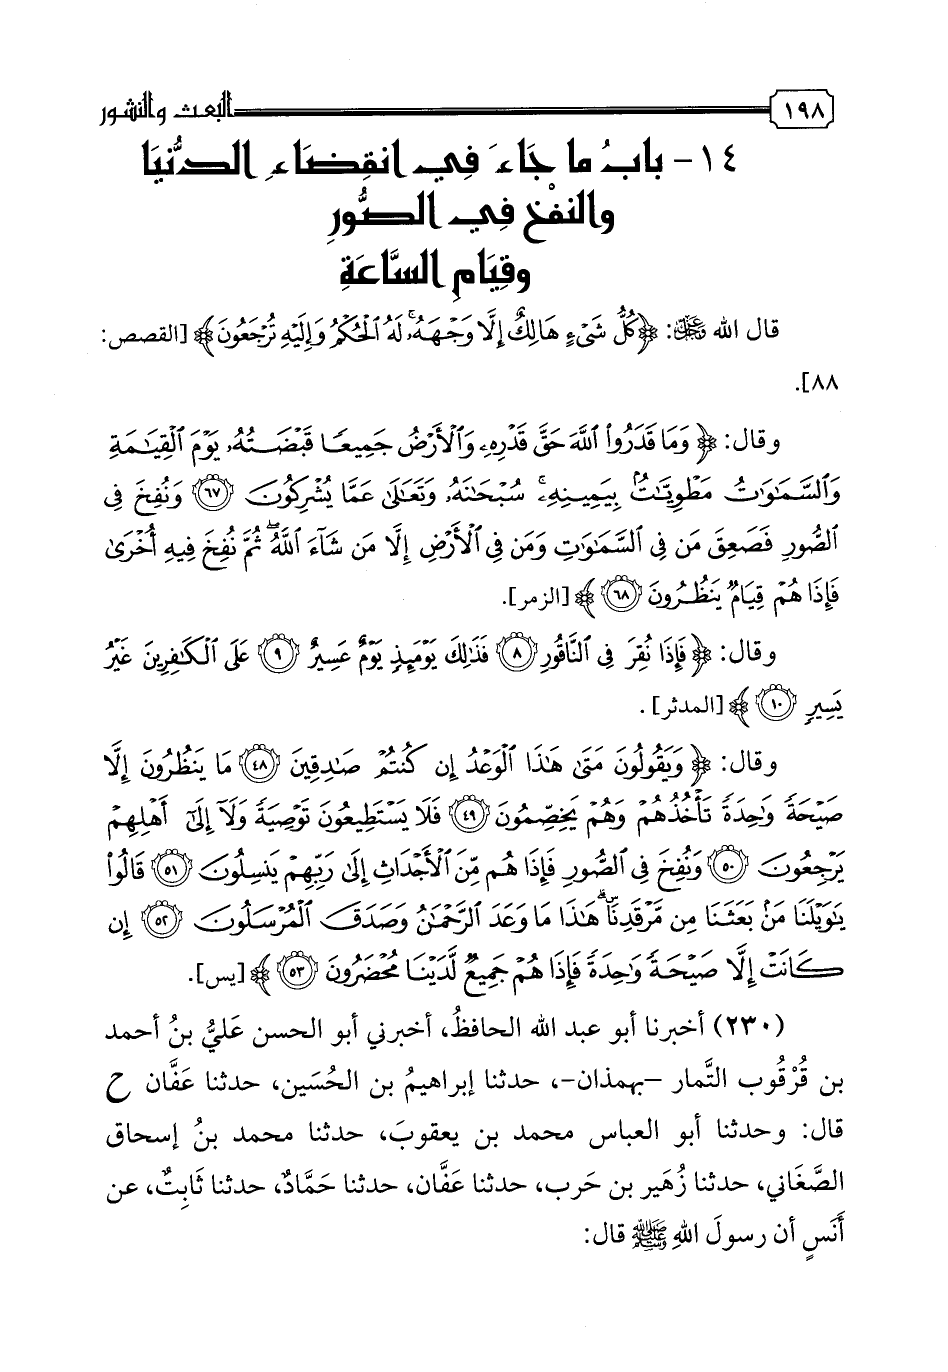 ١٩٨ البعث والنشور
١٤- بابُ ما جَاءَ فِي انقِضَاءِ الدُّنيَا
والنفْخِ فِي الصُّورِ
وقِيَامِ السَّاعَةِ
قال الله ﷿: ﴿كُلُّ شَىْءٍ هَالِكٌ إِلَّا وَجْهَهُۥ ۚ لَهُ ٱلْحُكْمُ وَإِلَيْهِ تُرْجَعُونَ﴾ [القصص:
٨٨].
وقال: ﴿وَمَا قَدَرُوا۟ ٱللَّهَ حَقَّ قَدْرِهِۦ وَٱلْأَرْضُ جَمِيعًا قَبْضَتُهُۥ يَوْمَ ٱلْقِيَـٰمَةِ
وَٱلسَّمَـٰوَٰتُ مَطْوِيَّـٰتٌۢ بِيَمِينِهِۦ ۚ سُبْحَـٰنَهُۥ وَتَعَـٰلَىٰ عَمَّا يُشْرِكُونَ ﴿٦٧﴾ وَنُفِخَ فِى
ٱلصُّورِ فَصَعِقَ مَن فِى ٱلسَّمَـٰوَٰتِ وَمَن فِى ٱلْأَرْضِ إِلَّا مَن شَآءَ ٱللَّهُ ۖ ثُمَّ نُفِخَ فِيهِ أُخْرَىٰ
فَإِذَا هُمْ قِيَامٌ يَنظُرُونَ ﴿٦٨﴾﴾ [الزمر].
وقال: ﴿فَإِذَا نُقِرَ فِى ٱلنَّاقُورِ ﴿٨﴾ فَذَٰلِكَ يَوْمَئِذٍ يَوْمٌ عَسِيرٌ ﴿٩﴾ عَلَى ٱلْكَـٰفِرِينَ غَيْرُ
يَسِيرٍ ﴿١٠﴾﴾ [المدثر].
وقال: ﴿وَيَقُولُونَ مَتَىٰ هَـٰذَا ٱلْوَعْدُ إِن كُنتُمْ صَـٰدِقِينَ ﴿٤٨﴾ مَا يَنظُرُونَ إِلَّا
صَيْحَةً وَٰحِدَةً تَأْخُذُهُمْ وَهُمْ يَخِصِّمُونَ ﴿٤٩﴾ فَلَا يَسْتَطِيعُونَ تَوْصِيَةً وَلَآ إِلَىٰٓ أَهْلِهِمْ
يَرْجِعُونَ ﴿٥٠﴾ وَنُفِخَ فِى ٱلصُّورِ فَإِذَا هُم مِّنَ ٱلْأَجْدَاثِ إِلَىٰ رَبِّهِمْ يَنسِلُونَ ﴿٥١﴾ قَالُوا۟
يَـٰوَيْلَنَا مَنۢ بَعَثَنَا مِن مَّرْقَدِنَا ۜ ۗ هَـٰذَا مَا وَعَدَ ٱلرَّحْمَـٰنُ وَصَدَقَ ٱلْمُرْسَلُونَ ﴿٥٢﴾ إِن
كَانَتْ إِلَّا صَيْحَةً وَٰحِدَةً فَإِذَا هُمْ جَمِيعٌ لَّدَيْنَا مُحْضَرُونَ ﴿٥٣﴾﴾ [يس].
(٢٣٠) أخبرنا أبو عبد الله الحافظُ، أخبرني أبو الحسن عَليُّ بنُ أحمد
بن قُرْقُوب التَّمار -بهمذان-، حدثنا إبراهيمُ بن الحُسَين، حدثنا عَفَّان ح
قال: وحدثنا أبو العباس محمد بن يعقوبَ، حدثنا محمد بنُ إسحاق
الصَّغَاني، حدثنا زُهَير بن حَرب، حدثنا عَفَّان، حدثنا حَمَّادٌ، حدثنا ثَابِتٌ، عن
أَنَسٍ أن رسولَ اللهِ ﷺ قال: